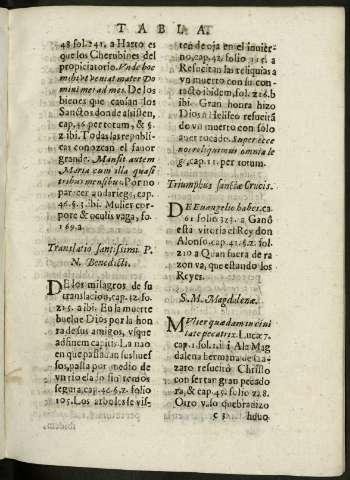 TABLA.
48 fol.241. a Harto es
que los Cherubines del
propiciatorio. Vnde hoc
mihi vt veniat mater Do
mini mei ad me. De los
bienes que causan los
Sanctos donde assisten,
cap.46 per totum, & §.
2. ibi. Todas las republi-
cas conozcan el fauor
grande. Mansit autem
Maria cum illa quasi
tribus mensibus. Por no
parecer andariega, cap.
46.§.3. ibi. Muger cor-
pore & oculis vaga, fo.
169.a
Translatio santissimi P.
N. Benedicti.
DE los milagros de su
translacion, cap.52. fo.
215. a. ibi. En la muerte
buelue Dios por la hon
ra de sus amigos, vsque
ad finem capit. La nao
en que passauan sus hues
sos, passa por medio de
vn rio elado sin remos
segura, cap.46.§.2. folio
165. Los arboles se vis-
ten de oja en el inuier-
no, cap.42. folio 215. a
Resucitan las reliquias a
vn muerto con su con
tacto ibidem, fol.216. b
ibi. Gran honra hizo
Dios a Heliseo resucitã
do vn muerto con solo
auer tocado. Super ecce
nos reliquimus omnia le
ge, cap.11. per totum.
Triumphus sanctæ Crucis.
DE Euangelio habes, ca.
61 folio 323. a Ganò
esta vitoria el Rey don
Alonso, cap.41.§.2. fol.
210 a Quan fuera de ra
zon va, que estando los
Reyes.
S. M. Magdalenæ.
MVlier quædam in ciui
tate peccatrix. Lucæ 7.
cap.1. fol.1. ibi A la Mag
dalena hermana de La-
zaro resucitò Christo
con ser tan gran pecado
ra, & cap.45. folio 228.
Otro vaso quebradizo
C 3 huuo